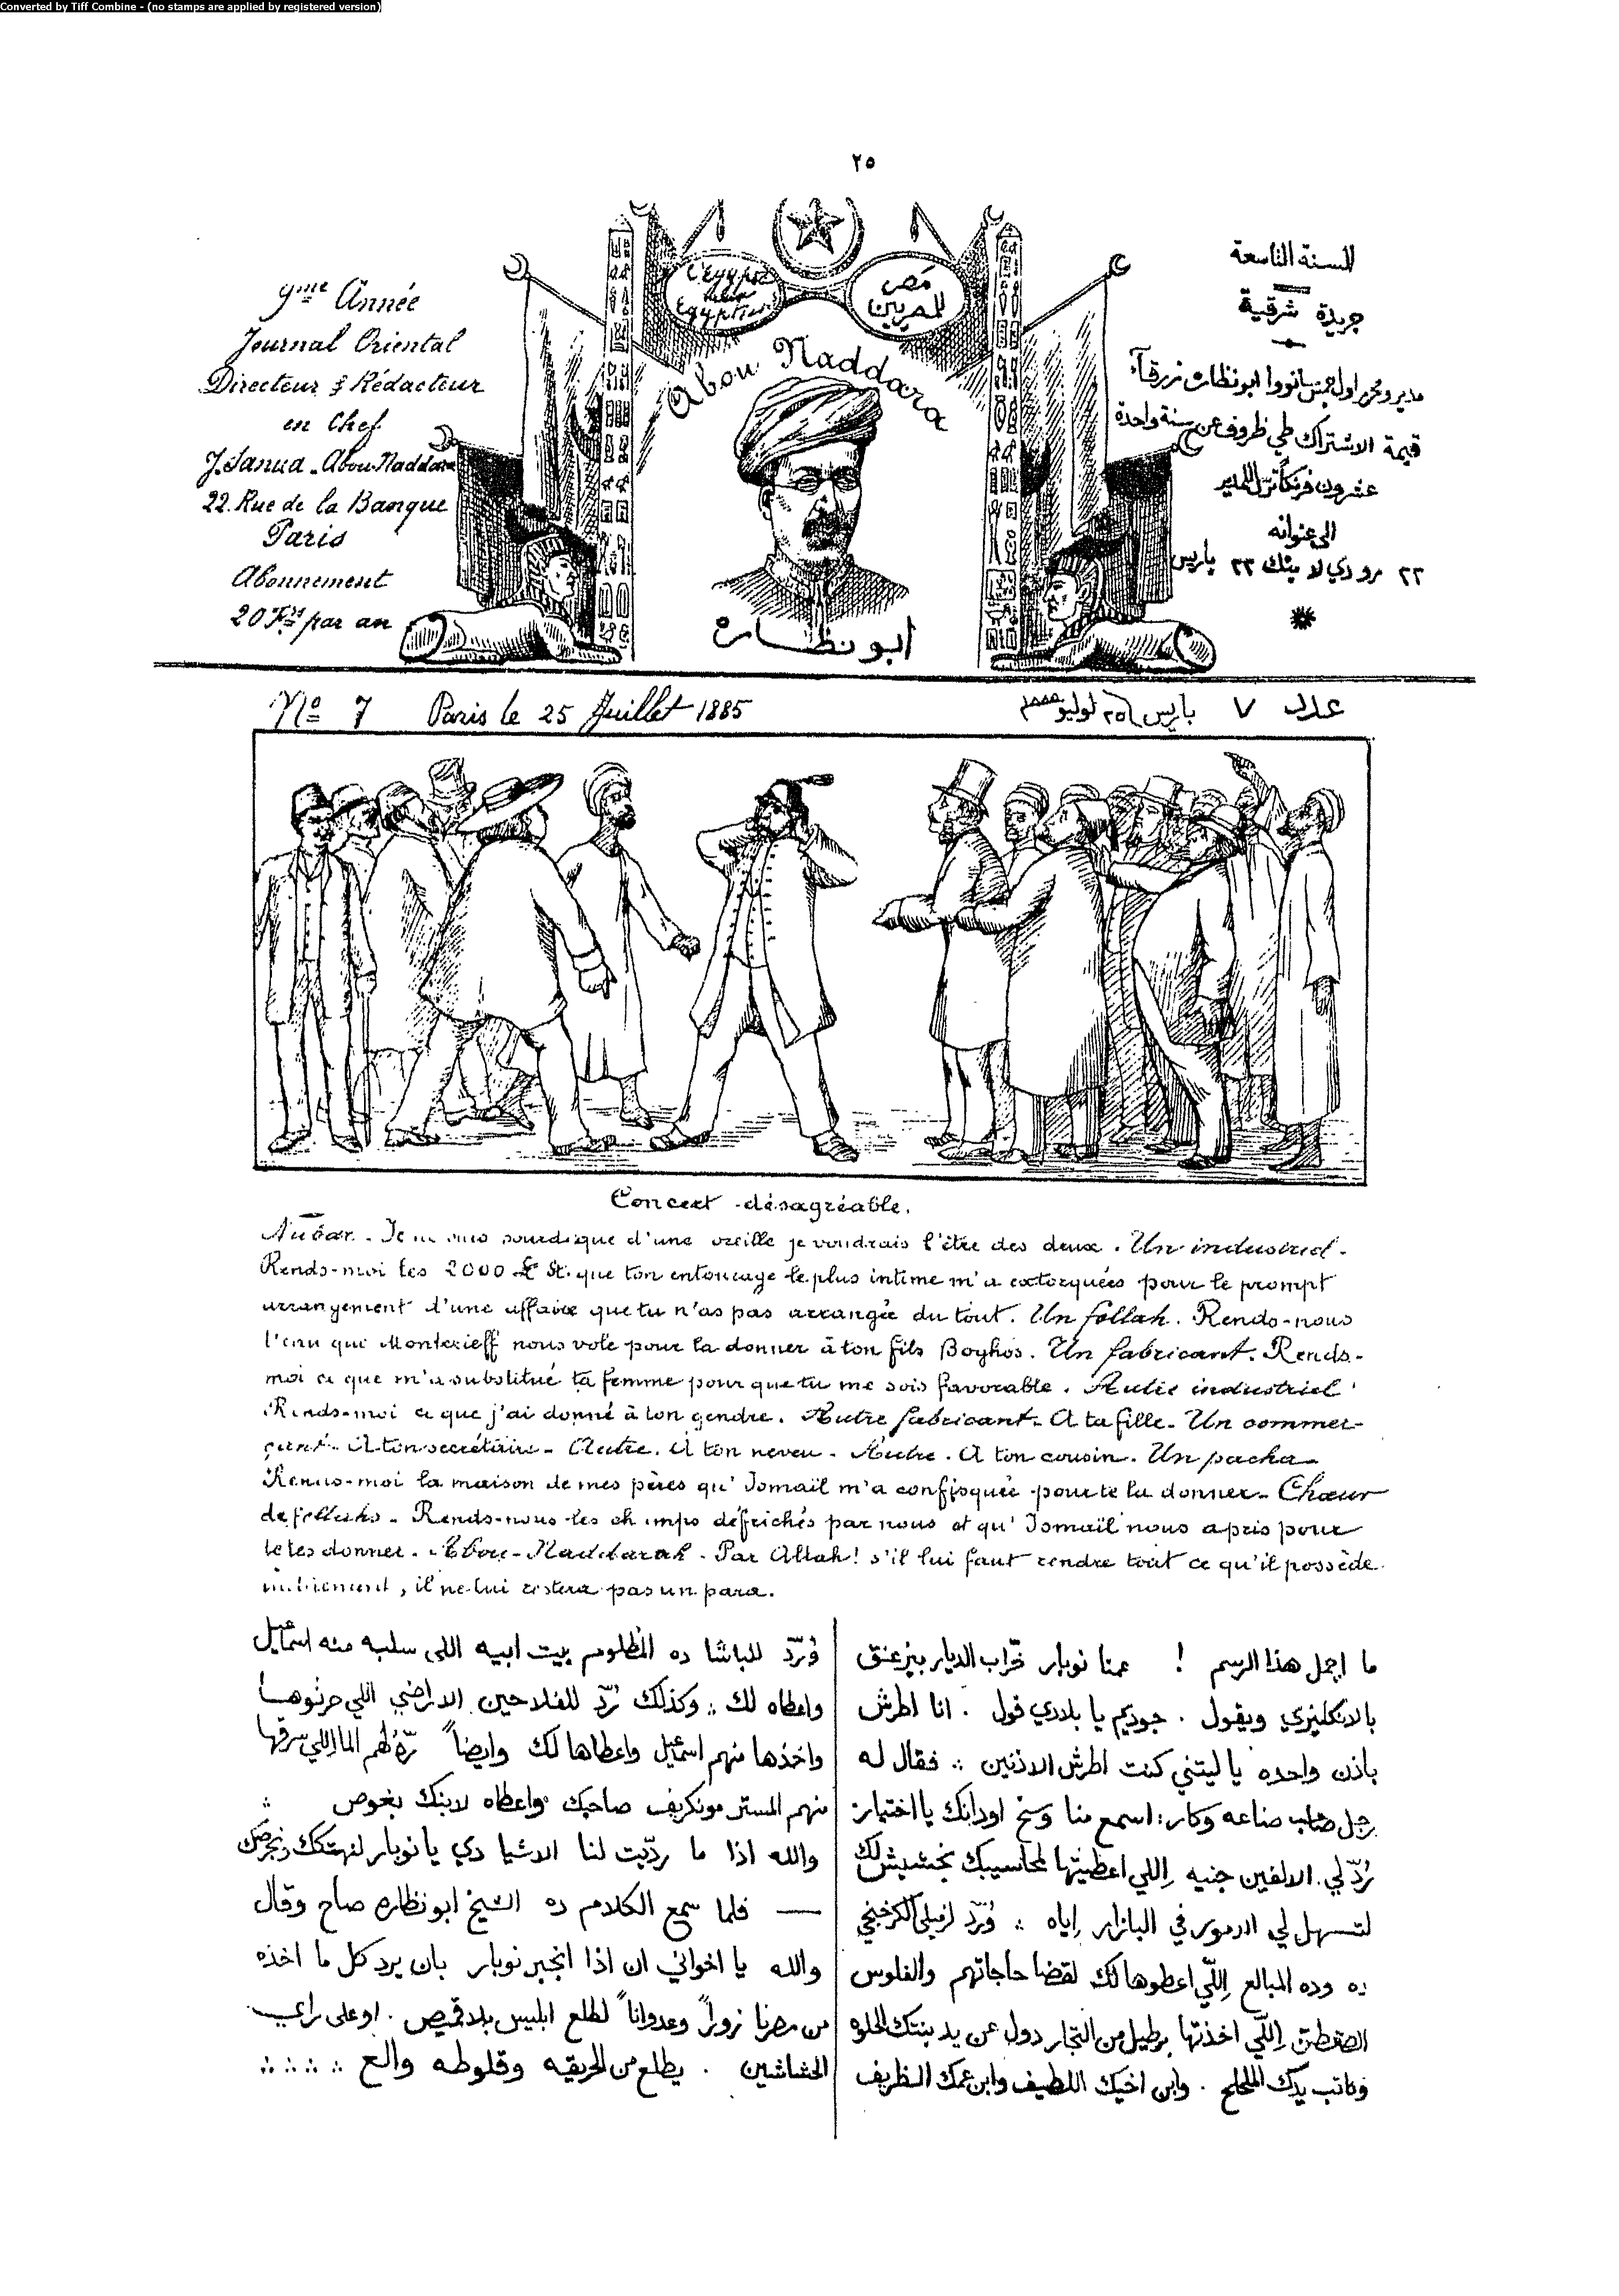 Converted by Tiff Combine - (no stamps are applied by registered version)
٢٥
9me Année
Journal Oriental
Directeur & Rédacteur
en Chef
J. Sanua - Abou Naddara
22. Rue de la Banque
Paris
Abonnement
20 Frs par an
L'Egypte
aux
Egyptiens
مصر
للمصريين
Abou Naddara
ابو نظاره
السنة التاسعة
جريدة شرقية
مدير ومحرر اول جمس سانووا ابو نظاره زرقآء
قيمة الاشتراك طي ظروف عن سنة واحدة
عشرون فرنكا ترسل للمدير
الى عنوانه
٢٢ رو دي لا بنك ٢٢ باريس
No 7 Paris le 25 Juillet 1885
عدد ٧ باريس ٢٥ لوليو
Concert désagréable.
Nubar. - Je ne suis sourd que d'une oreille je voudrais l'être des deux. Un industriel -
Rends-moi les 2000 £ St. que ton entourage le plus intime m'a extorquées pour le prompt
arrangement d'une affaire que tu n'as pas arrangée du tout. Un fellah. Rends-nous
l'eau que Montcrieff nous vole pour la donner à ton fils Boghos. Un fabricant. Rends-
moi ce que m'a substitué ta femme pour que tu me sois favorable. Autre industriel
Rends-moi ce que j'ai donné à ton gendre. Autre fabricant - A ta fille - Un commer-
çant - A ton secrétaire - Autre. A ton neveu - Autre. A ton cousin. Un pacha -
Rends-moi la maison de mes pères qu'Ismaïl m'a confisquée pour te la donner - Chœur
de fellahs - Rends-nous les champs défrichés par nous et qu'Ismaïl nous a pris pour
te les donner. Abou-Naddarah - Par Allah! s'il lui faut rendre tout ce qu'il possède
, il ne lui restera pas un para.
ما اجمل هذا الرسم ! عمنا نوبار خرّاب الديار بيزعنق
بالانكليزي ويقول . جوديم يا بلادي فول . انا اطرش
باذن واحده يا ليتني كنت اطرش الاذنين ؞ فقال له
رجل صاحب صناعه وكار: اسمع منا وسخ اودانك يا اختيار
رُدّ لي الالفين جنيه اِللي اعطيتها لمحاسيبك بخشيش لك
لتسهل لي الامور في البازار اياه ؞ ورُدّ لزميلي الكرخنجي
ده وده المبالغ اِللّي اعطوها لك لقضا حاجاتهم والفلوس
اِللّي اخذتها برطيل من التجار دول عن يد بنتك الحلوه
وكاتب يدك الملحلح . وابن اخيك اللطيف وابن عمك الظريف
ورُدّ للباشا ده المظلوم بيت ابيه اللى سلبه منه اسمٰعيل
واعطاه لك ؞ وكذلك رُدّ للفلاحين الاراضي اللي حرثوها
واخذها منهم اسمٰعيل واعطاها لك وايضاً رُدّ لهم الما اللي سرقها
منهم المستر مونكريف صاحبك واعطاه لابنك بغوص ؞
والله اذا ما ردّيت لنا الاشيا دي يا نوبار لنهتكك ونجرّصك
— فلما سمع الكلام ده الشيخ ابو نظاره صاح وقال
والله يا اخواني ان اذا انجبر نوبار بان يرد كل ما اخذه
من مصرنا زوراً وعدواناً لطلع ابليس بلا قميص . او على راي
الحشاشين . يطلع من الحريقه وقلوطه والع ؞ ؞ ؞ ؞